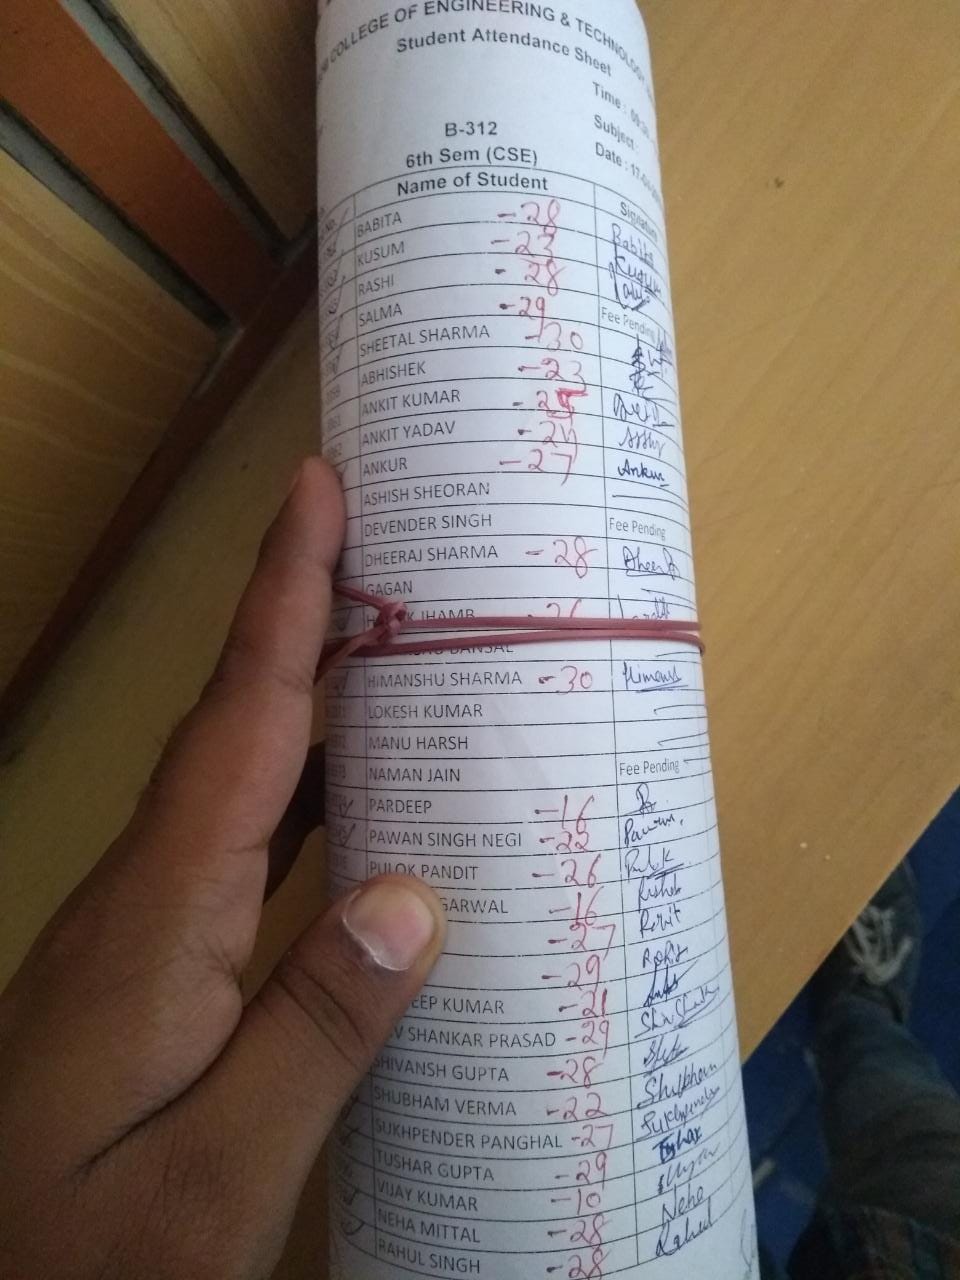 COLLEGE OF ENGINEERING & TECHNOLOGY
Student Attendance Sheet
Time :
Subject :
Date : 17-0
B-312
6th Sem (CSE)
Name of Student
BABITA -28 Babita
KUSUM -23 Kusum
RASHI - 28
SALMA -29 Fee Pending
SHEETAL SHARMA -30
ABHISHEK -23
ANKIT KUMAR
ANKIT YADAV
ANKUR -27 Ankur
ASHISH SHEORAN
DEVENDER SINGH Fee Pending
DHEERAJ SHARMA -28 Dheeraj
GAGAN
JHAMB -26
BANSAL
HIMANSHU SHARMA -30 Himans
LOKESH KUMAR
MANU HARSH
NAMAN JAIN Fee Pending
PARDEEP -16
PAWAN SINGH NEGI -22 Pawan
PULOK PANDIT -26 Pulok
GARWAL -16
-27 Rohit
-29
EEP KUMAR -21
V SHANKAR PRASAD -29
SHIVANSH GUPTA -28
SHUBHAM VERMA -22 Shubham
SUKHPENDER PANGHAL -27 Sukhpender
TUSHAR GUPTA -29 Tushar
VIJAY KUMAR -10
NEHA MITTAL -28 Neha
RAHUL SINGH -28 Rahul